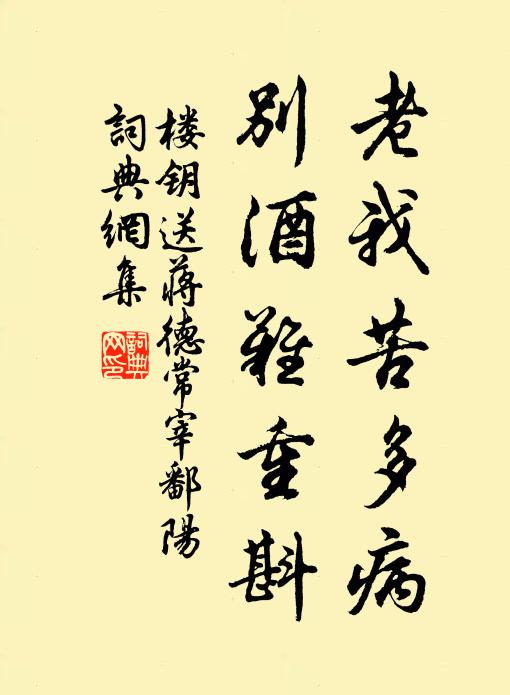 老我苦多病
别酒難重斟
楼钥送蒋德常宰鄱陽
詞典網集
詞典网印